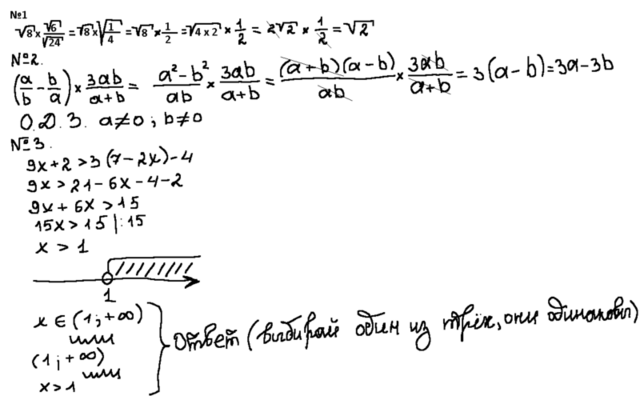 №1
√8 × √6/√24 = √8 × √(1/4) = √8 × 1/2 = √(4×2) × 1/2 = 2√2 × 1/2 = √2
№2.
(a/b − b/a) × 3ab/(a+b) = (a²−b²)/ab × 3ab/(a+b) = (a+b)(a−b)/ab × 3ab/(a+b) = 3(a−b) = 3a−3b
О.Д.З. a≠0; b≠0
№3.
9x+2>3(7−2x)−4
9x>21−6x−4−2
9x+6x>15
15x>15 |:15
x>1
1
x∈(1;+∞)
или
(1;+∞)
или
x>1
Ответ (выбирай один из трёх, они одинаковы)